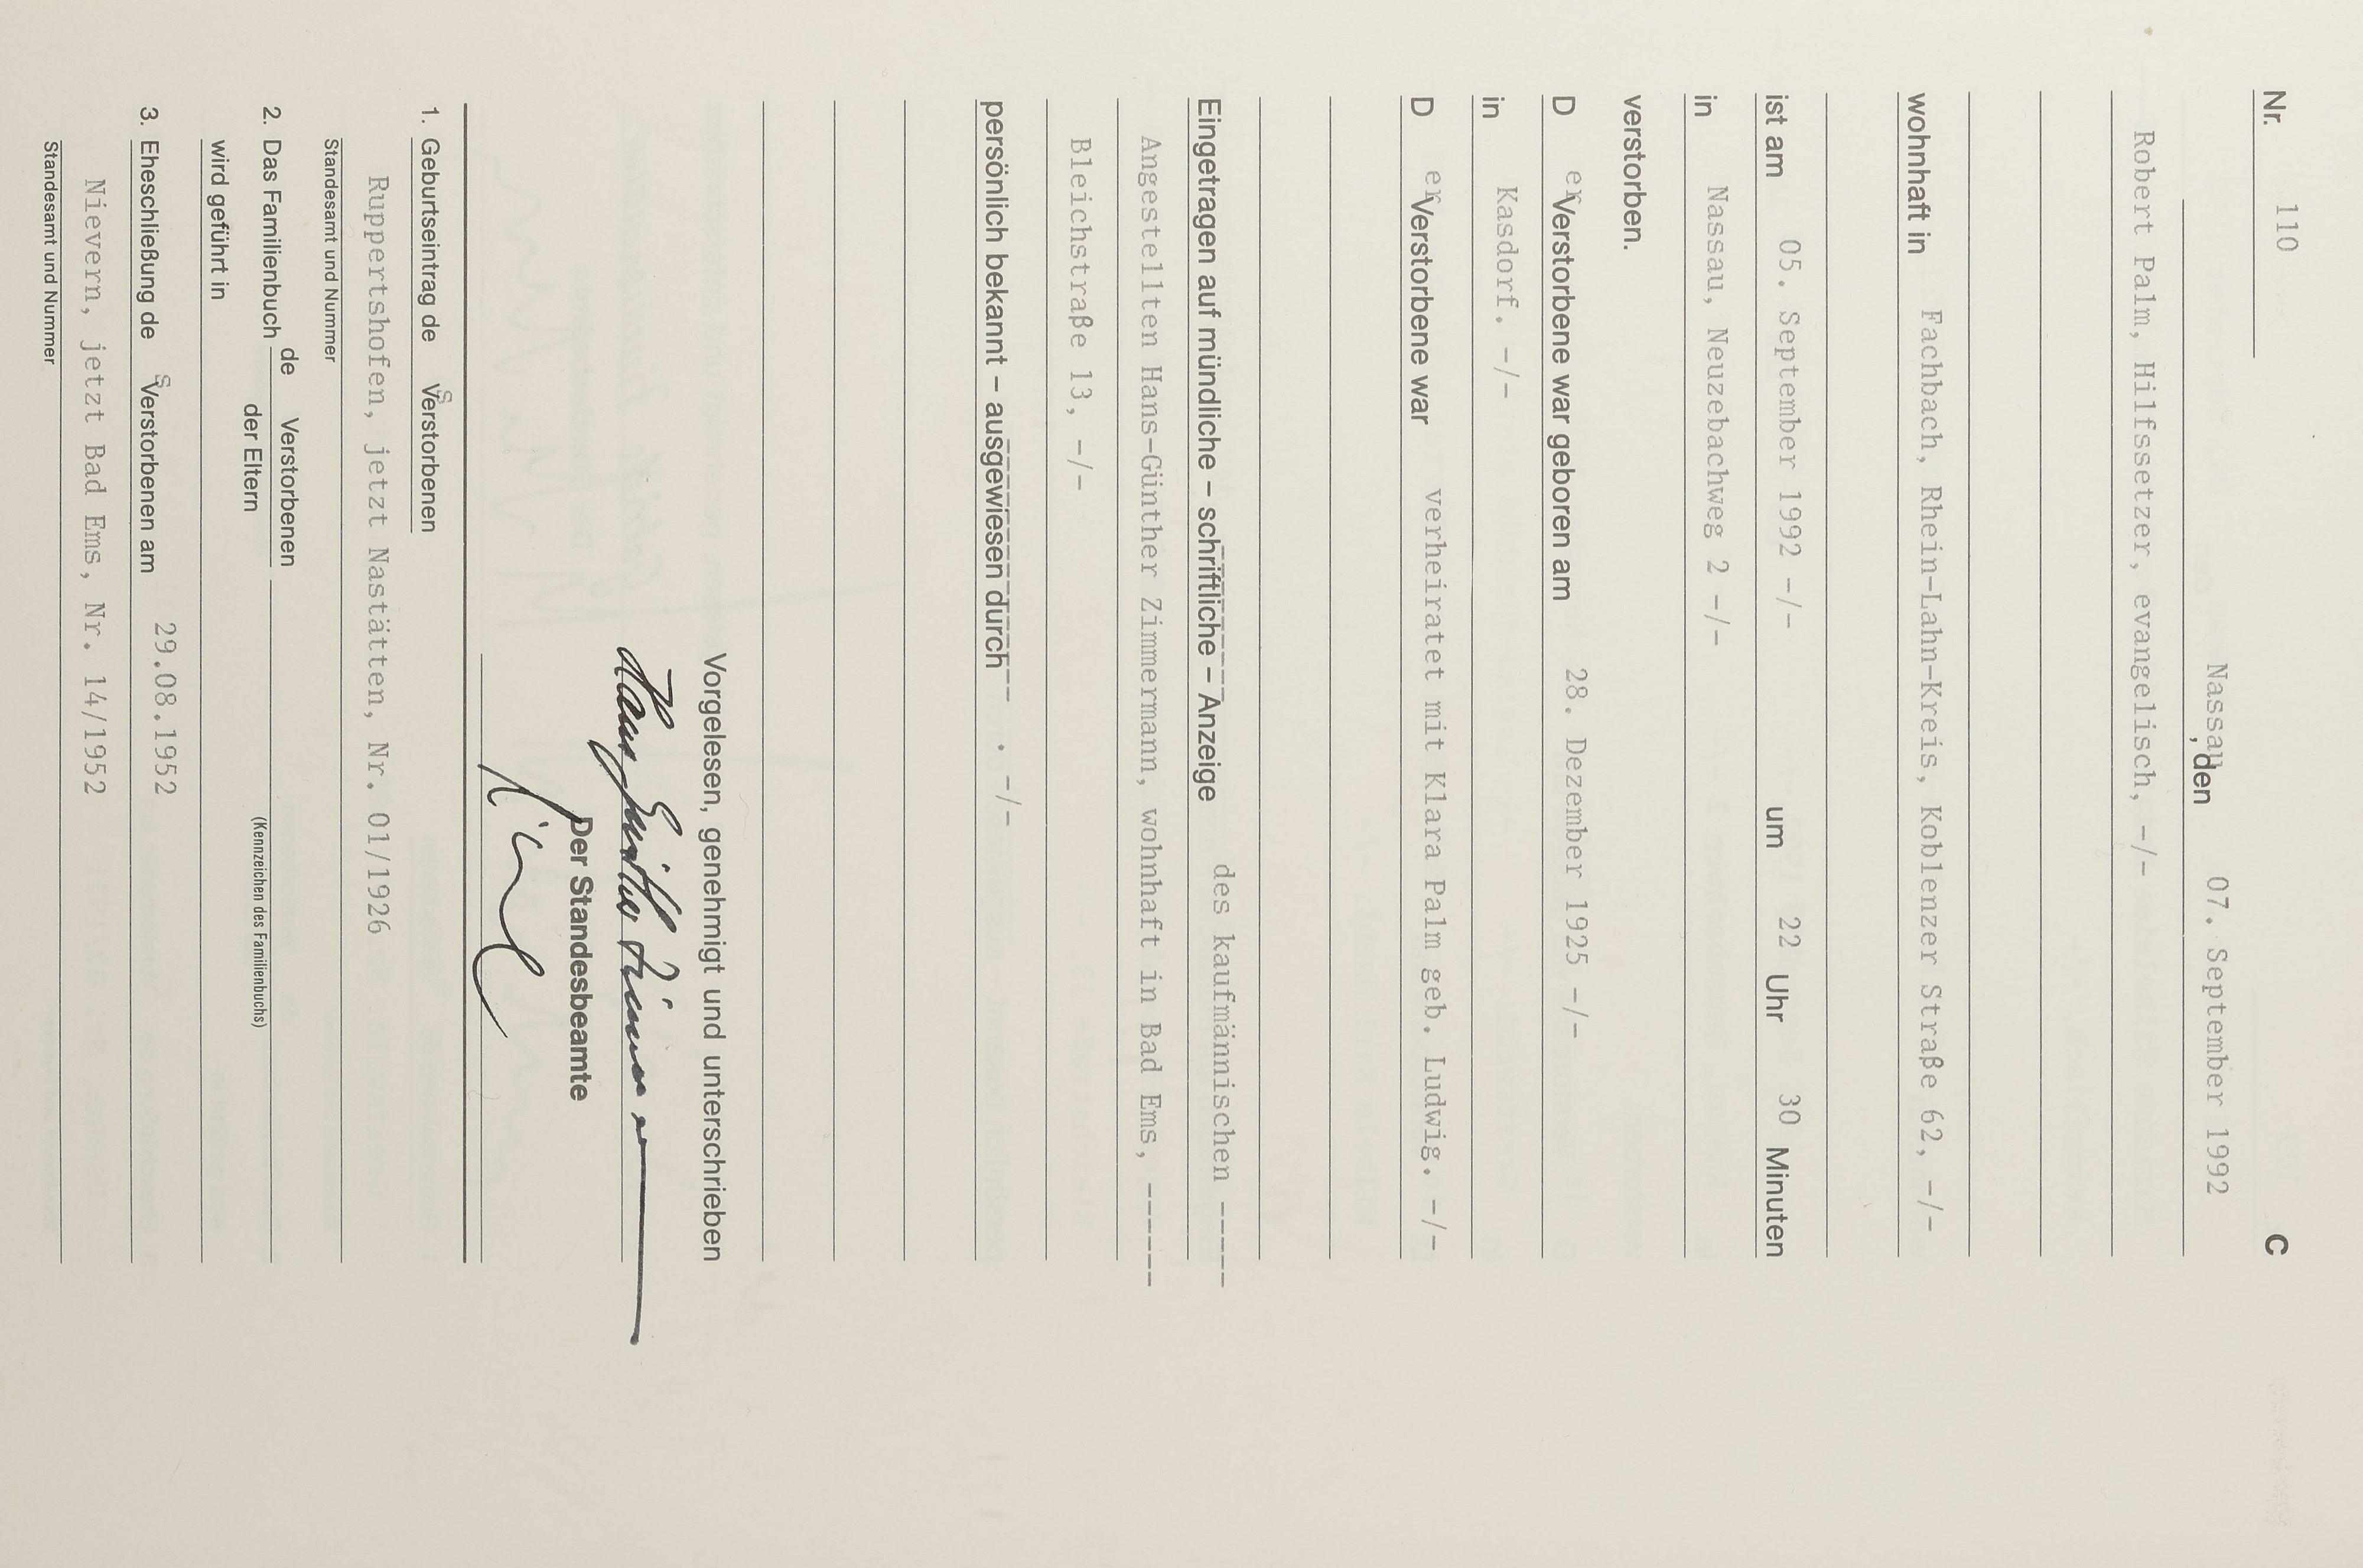 Nr. 110 C
Nassau, den 07. September 1992
Robert Palm, Hilfssetzer, evangelisch, -/-
wohnhaft in Fachbach, Rhein-Lahn-Kreis, Koblenzer Straße 62, -/-
ist am 05. September 1992 -/- um 22 Uhr 30 Minuten
in Nassau, Neuzebachweg 2 -/-
verstorben.
D er Verstorbene war geboren am 28. Dezember 1925 -/-
in Kasdorf. -/-
D er Verstorbene war verheiratet mit Klara Palm geb. Ludwig. -/-
Eingetragen auf mündliche – schriftliche – Anzeige des kaufmännischen -----
Angestellten Hans-Günther Zimmermann, wohnhaft in Bad Ems, ------
Bleichstraße 13, -/-
persönlich bekannt – ausgewiesen durch . -/-
Vorgelesen, genehmigt und unterschrieben
Hans Günther Zimmermann
Der Standesbeamte
1. Geburtseintrag de s Verstorbenen
Ruppertshofen, jetzt Nastätten, Nr. 01/1926
Standesamt und Nummer
2. Das Familienbuch de Verstorbenen
der Eltern
(Kennzeichen des Familienbuchs)
wird geführt in
3. Eheschließung de s Verstorbenen am 29.08.1952
Nievern, jetzt Bad Ems, Nr. 14/1952
Standesamt und Nummer